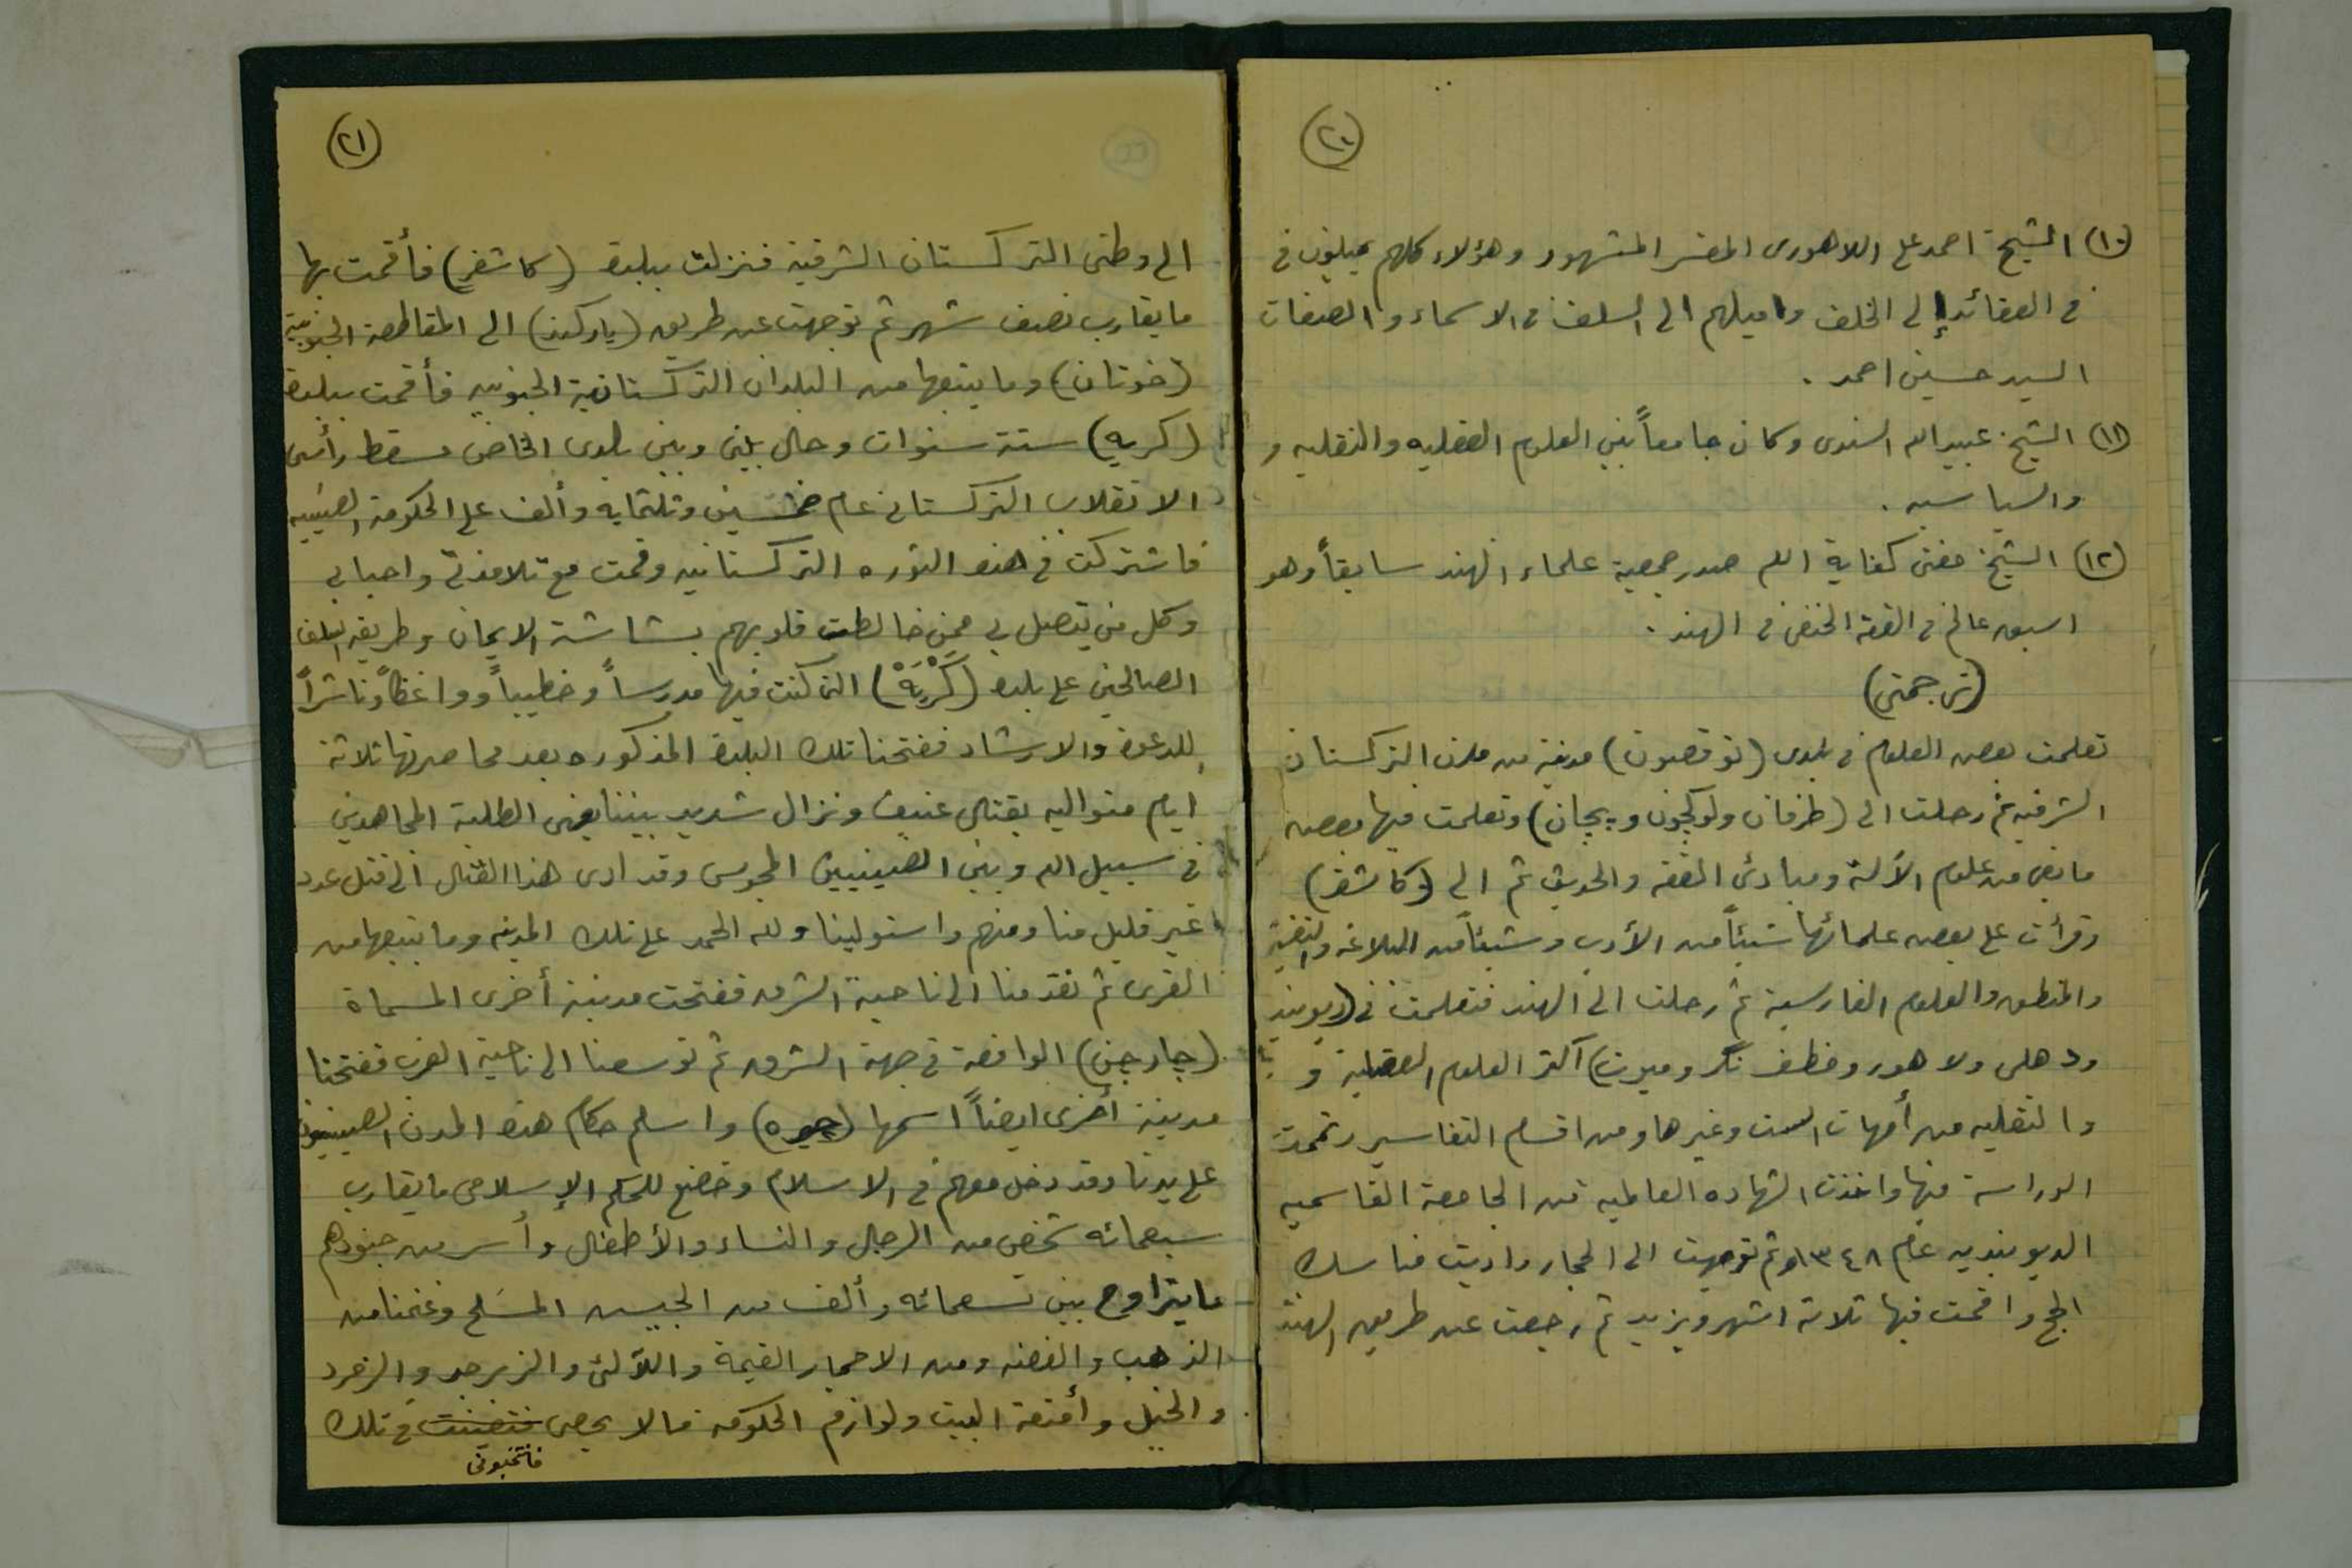 (٢٠)
(١٠) الشيخ احمد على اللاهورى المفسر المشهور وهؤلاء كلهم يميلون فى
فى العقائد إلى الخلف واميلهم الى السلف فى الاسماء والصفات
السيد حسين احمد .
(١١) الشيخ عبيد الله السندى وكان جامعاً بين العلوم العقليه والنقليه و
والسياسيه .
(١٢) الشيخ مفتى كفاية الله صدر جمعية علماء الهند سابقاً وهو
اسبق عالم فى الفقه الحنفى فى الهند .
(ترجمتى)
تعلمت بعض العلوم فى بلدى (توقصون) مدينة من مدن التركستان
الشرقيه ثم رحلت الى (طرفان ولوكچون و پچان) وتعلمت فيها بعض
ما بقى من علوم الآلة ومبادئ الفقه والحديث ثم الى (كاشغر)
وقرأت على بعض علمائها شيئاً من الأدب وشيئاً من البلاغه
والمنطق والعلوم الفارسية ثم رحلت الى الهند فتعلمت فى (ديوبند
ودهلى ولاهور ومظفر نگر وميرت) أكثر العلوم العقلية و
والنقليه من أمهات الست وغيرها ومن اقسام التفاسير وتممت
الدراسة فيها واخذت الشهاده العالميه من الجامعة القاسميه
الديوبنديه عام ١٣٤٨ ثم توجهت الى الحجاز واديت مناسك
الحج واقمت فيها ثلاثة اشهر ويزيد ثم رجعت عن طريق الهند
(٢١)
الى وطنى التركستان الشرقية فنزلت ببلدة (كاشغر) فأقمت بها
ما يقارب نصف شهر ثم توجهت عن طريق (ياركند) الى المقاطعة الجنوبية
(خوتان) وما يتبعها من البلدان التركستانية الجنوبيه فأقمت ببلدة
(كريه) ستة سنوات وحال بينى وبين بلدى الخاص مسقط رأسى
الانقلاب التركستانى عام خمسين وثلثمايه وألف على الحكومة الصينيه
فاشتركت فى هذه الثوره التركستانيه وقمت مع تلامذتى واحبابى
وكل من يتصل بى ممن خالطت قلوبهم بشاشة الايمان وطريقة السلف
الصالحين على بلدة (كَرْيَهْ) التى كنت فيها مدرساً وخطيباً وواعظاً وناشراً
للدعوة والارشاد ففتحنا تلك البلدة المذكوره بعد محاصرتها ثلاثة
ايام متواليه بقتال عنيف ونزال شديد بيننا يعنى الطلبة المجاهدين
فى سبيل الله وبين الصينيين المجوس وقد ادى هذا القتال الى قتل عدد
غير قليل منا ومنهم واستولينا ولله الحمد على تلك المدينه وما يتبعها من
القرى ثم تقدمنا الى ناحية الشرق ففتحت مدينة أخرى المسماة
(چارچن) الواقعة فى جهة الشرق ثم توسعنا الى ناحية الغرب ففتحنا
مدينة أخرى ايضاً اسمها (چيره) واسلم حكام هذه المدن الصينييون
على يدنا وقد دخل معهم فى الاسلام وخضع للحكم الإسلامى ما يقارب
سبعمائه شخص من الرجال والنساء والأطفال وأسر من جنودهم
ما يتراوح بين تسعمائه وألف من الجيش المسلح وغنمنا من
الذهب والفضه ومن الاحجار القيمة واللآلئ والزبرجد والزمرد
والخيل وأمتعة البيت ولوازم الحكومه مالا يحصى فى تلك
فانتخبونى